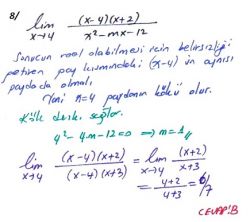 8/ lim x→4 (x-4)(x+2) / x² - mx - 12
Sonucun reel olabilmesi için belirsizliği
getiren pay kısmındaki (x-4) ün aynısı
paydada olmalı.
Yani x=4 paydanın kökü olur.
Kök denk. sağlar.
4² - 4m - 12 = 0 ⇒ m = 1
lim x→4 (x-4)(x+2) / (x-4)(x+3) = lim x→4 (x+2) / x+3
= 4+2 / 4+3 = 6/7
CEVAP:B